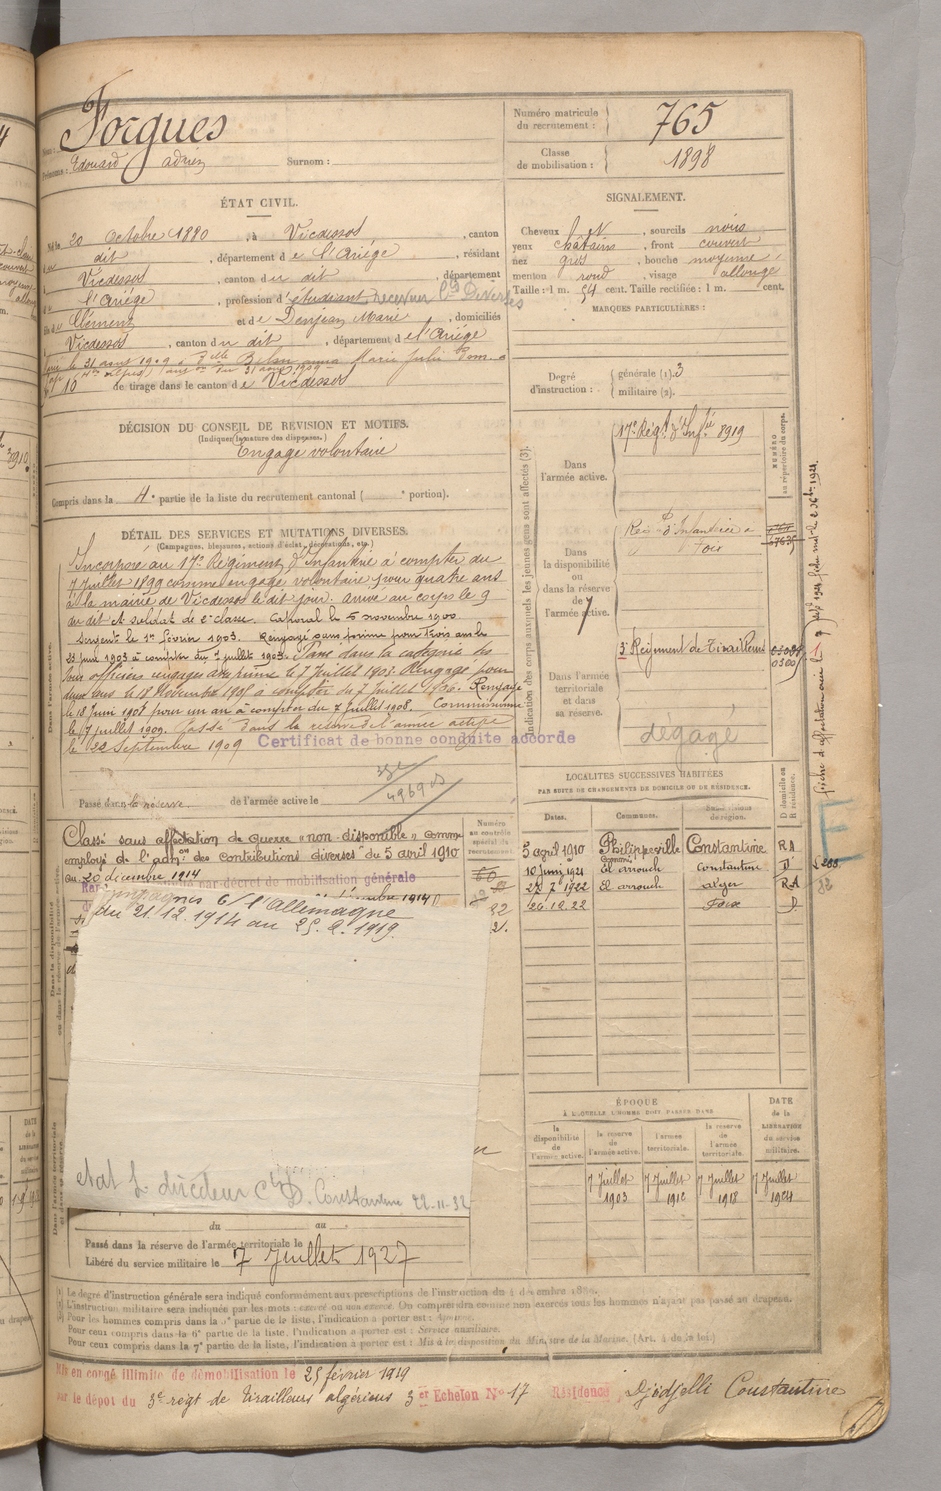 Nom : Forgues
Prénoms : Edouard Adrien Surnom :
Numéro matricule
du recrutement : 765
Classe
de mobilisation : 1898
ÉTAT CIVIL.
Né le 20 Octobre 1880, à Vicdessos, canton
dudit, département de l'Ariége, résidant
à Vicdessos, canton du dit, département
de l'Ariége, profession d'étudiant Receveur Cons Diverses
fils de Clément et de Denjean Marie, domiciliés
à Vicdessos, canton du dit, département de l'Ariége
Marié le 31 août 1909 à Dlle Marie Julie
N° 10 de tirage dans le canton de Vicdessos
SIGNALEMENT.
Cheveux N, sourcils noirs
yeux châtains, front couvert
nez gros, bouche moyenne,
menton rond, visage allongé
Taille : 1 m. 54 cent. Taille rectifiée : 1 m. cent.
MARQUES PARTICULIÈRES :
Degré
d'instruction :
générale (1). 3
militaire (2).
DÉCISION DU CONSEIL DE REVISION ET MOTIFS.
(Indiquer la nature des dispenses.)
Engagé volontaire
Compris dans la 4e partie de la liste du recrutement cantonal ( e portion).
DÉTAIL DES SERVICES ET MUTATIONS DIVERSES.
(Campagnes, blessures, actions d'éclat, décorations, etc.)
Incorporé au 17e Régiment d'Infanterie à compter du
7 Juillet 1899 comme engagé volontaire pour quatre ans
à la mairie de Vicdessos le dit jour. Arrivé au corps le 9
du dit et soldat de 2e classe. Caporal le 5 novembre 1900
Sergent le 1er février 1903. Rengagé sans prime pour trois ans le
23 juin 1903 à compter du 7 juillet 1903. Passé dans la catégorie des
sous officiers rengagés avec prime le 7 Juillet 1905. Rengagé pour
deux ans le 18 Novembre 1905 à compter du 7 juillet 1906. Rengagé
le 18 Juin 1908 pour un an à compter du 7 Juillet 1908. Commissionné
le 7 juillet 1909. Passé dans la réserve de l'armée active
le 22 Septembre 1909 Certificat de bonne conduite accordé
Passé dans la réserve de l'armée active le
4969
Indication des corps auxquels les jeunes gens sont affectés (3).
NUMÉRO
au répertoire du corps.
Dans
l'armée active.
17e Régt d'Infie 8919
Dans
la disponibilité
ou
dans la réserve
de
l'armée active.
Régt d'Infanterie à
Foix
Dans l'armée
territoriale
et dans
sa réserve.
3e Régiment de Tirailleurs
dégagé
LOCALITÉS SUCCESSIVES HABITÉES
PAR SUITE DE CHANGEMENTS DE DOMICILE OU DE RÉSIDENCE.
Dates. Communes. Subdivisions de région. D domicile ou R résidence.
5 avril 1910 Philippeville Constantine RA
10 Juin 1921 El arrouch Constantine D
27 7 1922 El arrouch Alger RA
26.12.22 Foix D
Numéro
au contrôle
spécial du
recrutement.
Classé sans affectation de guerre "non disponible" comme
employé de l'admon des contributions diverses du 5 avril 1910
au 20 décembre 1914
par décret de mobilisation générale
Campagnes c/ l'Allemagne
du 21.12.1914 au 25.2.1919.
ÉPOQUE
À LAQUELLE L'HOMME DOIT PASSER DANS
la disponibilité de l'armée active. la réserve de l'armée active. l'armée territoriale. la réserve de l'armée territoriale. DATE de la LIBÉRATION du service militaire.
7 Juillet 1903 7 Juillet 1912 7 Juillet 1918 7 Juillet 1924
état d. directeur Cons D. Constantine 22-11-32
du au
Passé dans la réserve de l'armée territoriale le
Libéré du service militaire le 7 Juillet 1927
(1) Le degré d'instruction générale sera indiqué conformément aux prescriptions de l'instruction du 4 décembre 1889.
(2) L'instruction militaire sera indiquée par les mots : exercé ou non exercé. On comprendra comme non exercés tous les hommes n'ayant pas passé au drapeau.
(3) Pour les hommes compris dans la 4e partie de la liste, l'indication à porter est :
Pour ceux compris dans la 6e partie de la liste, l'indication à porter est : Service auxiliaire.
Pour ceux compris dans la 7e partie de la liste, l'indication à porter est : Mis à la disposition du Ministre de la Marine. (Art. 4 de la loi.)
Mis en congé illimité de démobilisation le 25 février 1919
par le dépôt du 3e régt de Tirailleurs algériens 3er Echelon No 17 Résidence Djidjelli Constantine